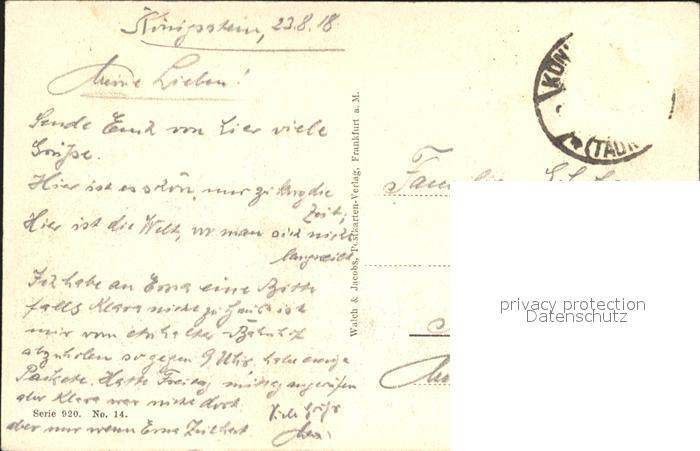 Königstein, 23.8.18
Meine Lieben!
Sende Euch von hier viele
Grüße.
Hier ist es schön, nur zu kurz die
Zeit;
Hier ist die Welt, wo man sich nicht
langweilt
Ich habe an Erna eine Bitte
falls Klara nicht zu Hause ist
mir vom Anhalter-Bahnhof
abzuholen so gegen 9 Uhr, habe einige
Packete. Hatte Freitag mittag angerufen
aber Klara war nicht dort.
Viele Grüße
aber nur wenn Erna Zeit hat.
Serie 920. No. 14.
Walch & Jacobs, Postkarten-Verlag, Frankfurt a. M.
KÖN
(TAUN
privacy protection
Datenschutz